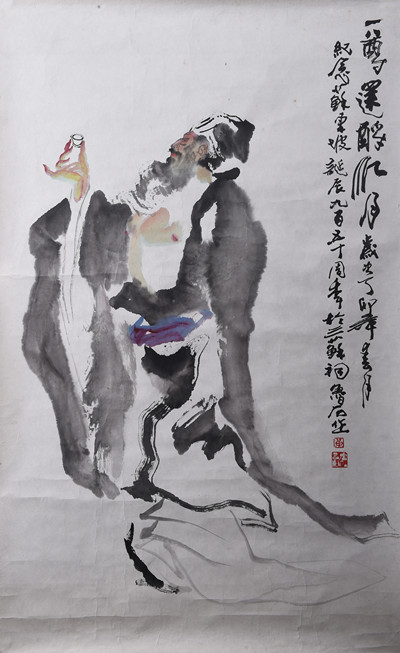 一尊還酹江月歲次丁卯年春月
紀念蘇東坡誕辰九百五十周年於三蘇祠